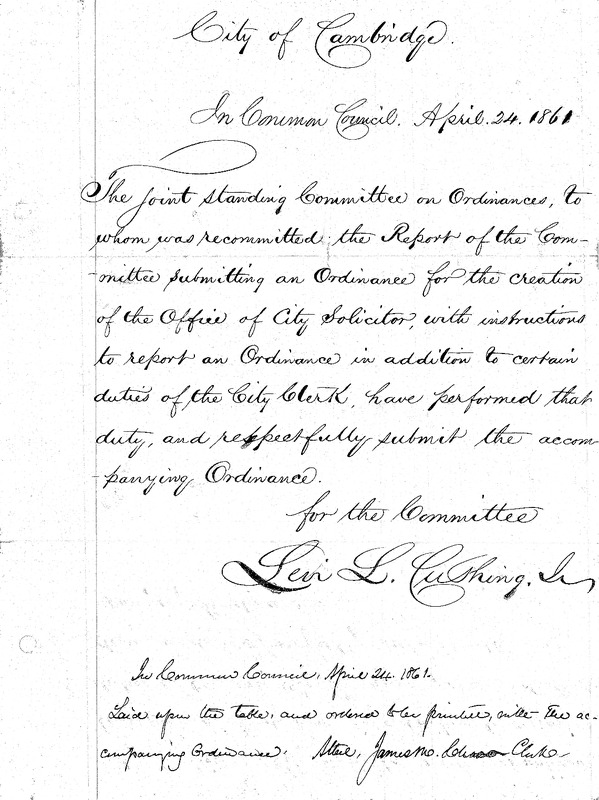 City of Cambridge.
In Common Council. April. 24. 1861
The Joint Standing Committee on Ordinances, to
whom was recommitted the Report of the Com-
-mittee submitting an Ordinance for the creation
of the Office of City Solicitor, with instructions
to report an Ordinance in addition to certain
duties of the City Clerk, have performed that
duty, and respectfully submit the accom-
-panying Ordinance.
for the Committee
Levi L. Cushing, Jr
In Common Council, April 24. 1861.
Laid upon the table, and ordered to be printed, with the ac-
companying Ordinance. Attest, James M. Clerk